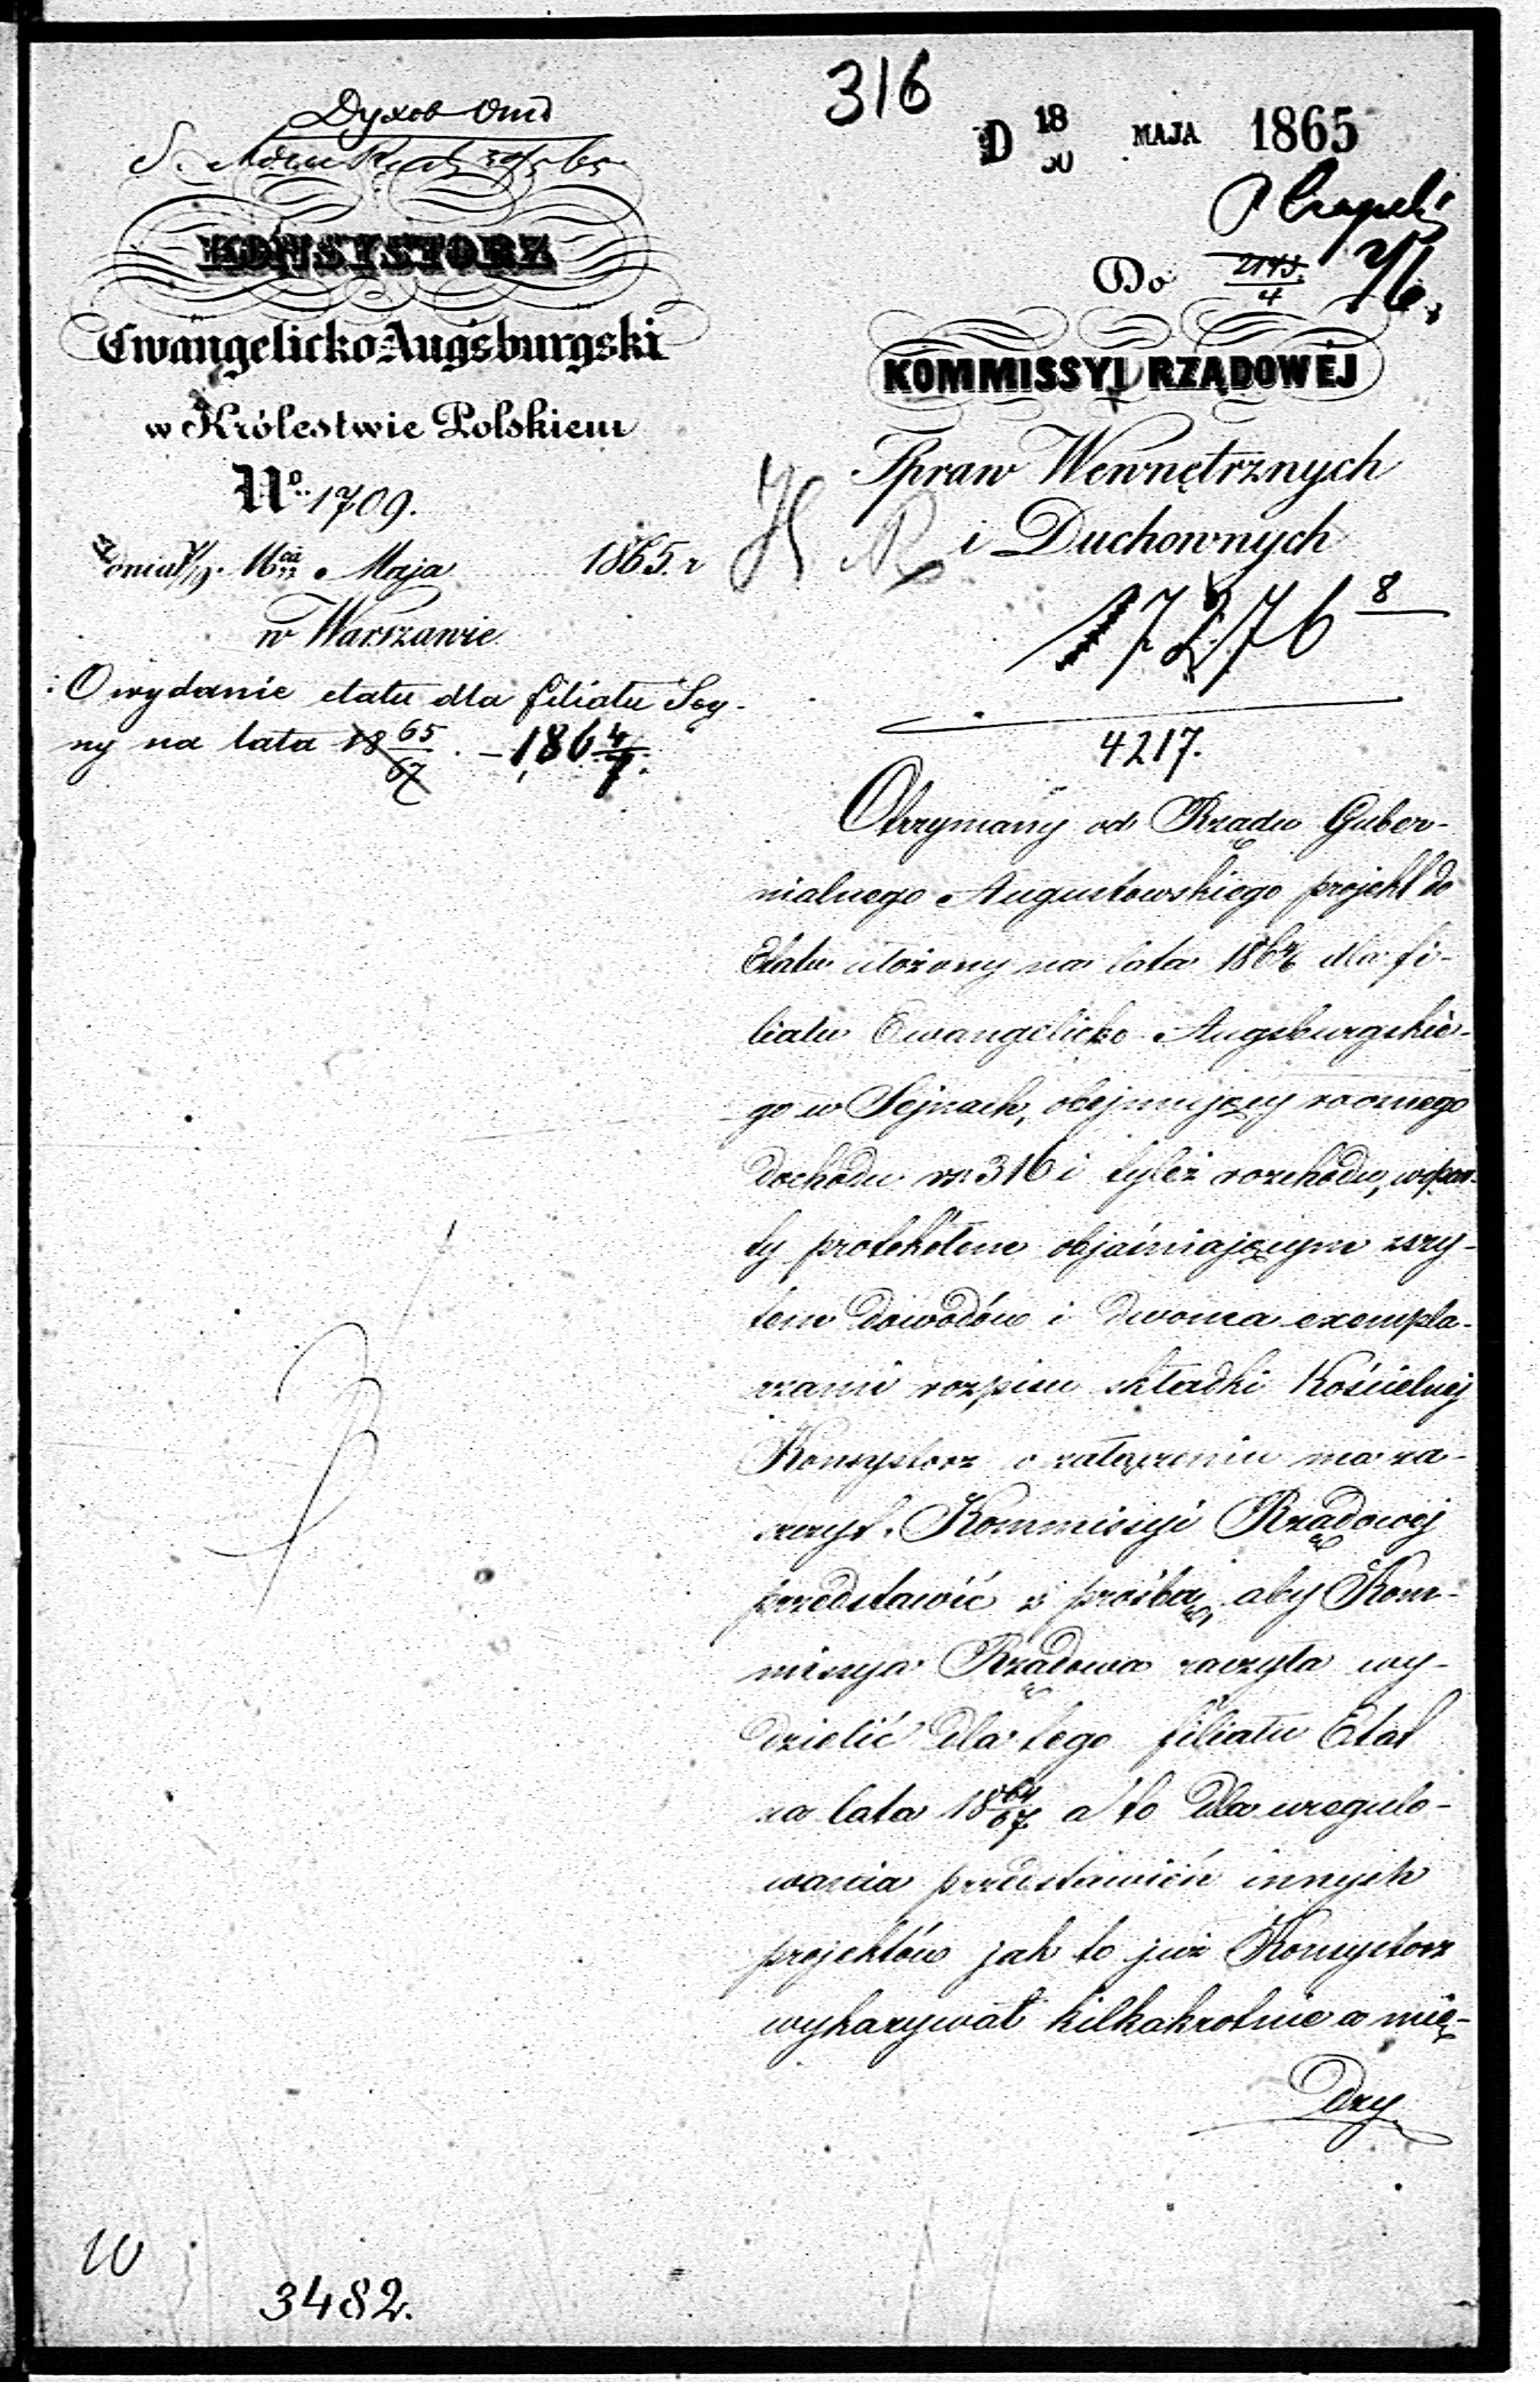 316
Духов Отд
D 18/30 MAJA 1865
KONSYSTORZ
Ewangelicko Augsburgski
w Królestwie Polskiem
No 1709.
dnia Mca Maja 1865 r
w Warszawie
O wydanie etatu dla filiału Sey-
ny na lata 18 65/67 - 186 4/7.
Do 2/6
KOMMISSYI RZĄDOWÉJ
Spraw Wewnętrznych
i Duchownych
17276 8
4217.
Otrzymany od Rządu Guber-
nialnego Augustowskiego projekt do
Etatu ułożony na lata dla fi-
liału Ewangelicko-Augsburgskie-
go w Sejnach, obejmujący rocznego
dochodu rs. 316 i tyleż rozchodu, wspar-
ty protokółem objaśniającym zszy-
tem dowodów i dwoma exempla-
rzami rozpisu składki Kościelnej
Konsystorz w załączeniu ma za-
szczyt Kommissyi Rządowej
przedstawić z prośbą, aby Kom-
missya Rządowa raczyła wy-
dzielić dla tego filiału Etat
na lata 18 64/67 a to dla uregulo-
wania przedstawień innych
projektów jak to już Konsystorz
wykazywał kilkakrotnie a mię-
dzy
10
3482.